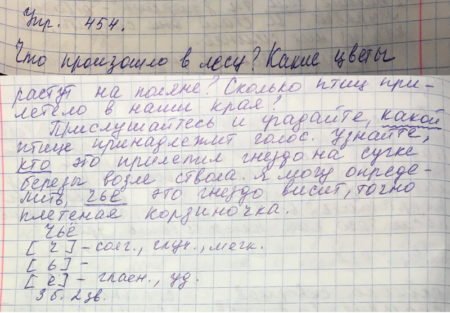 Упр. 454.
Что произошло в лесу? Какие цветы
растут на поляне? Сколько птиц при-
летело в наши края?
Прислушайтесь и угадайте, какой
птице принадлежит голос. Узнайте,
кто это прилепил гнездо на сучке
берёзы возле ствола. Я могу опреде-
лить, чьё это гнездо висит, точно
плетеная корзиночка.
Чьё
[ч] - согл., глух., мягк.
[ь] -
[ё] - гласн., уд.
3 б. 2 зв.